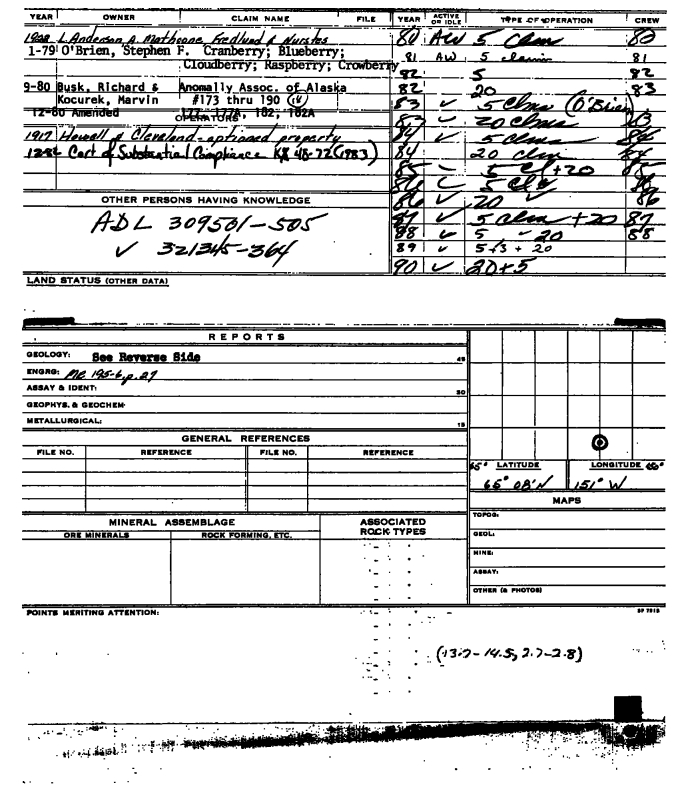 YEAR OWNER CLAIM NAME FILE
1928 L. Anderson, A. Mathsone, Fredlund & Nurstes
1-79 O'Brien, Stephen F. Cranberry; Blueberry;
Cloudberry; Raspberry; Crowberry
9-80 Busk, Richard & Anomally Assoc. of Alaska
Kocurek, Marvin #173 thru 190 (14)
12-80 Amended 177-177A, 182, 182A
OPERATORS
1917 Howell & Cleveland - optioned property
12-86 Cert of Substantial Compliance KX 48-72 (1983)
OTHER PERSONS HAVING KNOWLEDGE
ADL 309501-505
✓ 321345-364
LAND STATUS (OTHER DATA)
YEAR ACTIVE OR IDLE TYPE OF OPERATION CREW
80 AW 5 clms 80
81 AW 5 claims 81
82 5 82
82 20 83
83 ✓ 5 clms (O'Brien)
83 ✓ 20 clms 83
84 ✓ 5 clms 84
84 20 clms 84
85 - 5 cl + 20 85
86 5 cls 86
86 ✓ 20 ✓ 86
87 ✓ 5 clms + 20 87
88 ✓ 5 - 20 88
89 ✓ 5+3 + 20
90 ✓ 20+5
REPORTS
GEOLOGY: See Reverse Side 45
ENGRG: MR 195-6, p. 27
ASSAY & IDENT: 30
GEOPHYS. & GEOCHEM:
METALLURGICAL: 15
GENERAL REFERENCES
FILE NO. REFERENCE FILE NO. REFERENCE
MINERAL ASSEMBLAGE
ORE MINERALS ROCK FORMING, ETC.
ASSOCIATED ROCK TYPES
65° LATITUDE LONGITUDE 150°
65° 08'N 151° W
MAPS
TOPOG:
GEOL:
MINE:
ASSAY:
OTHER (& PHOTOS)
POINTS MERITING ATTENTION:
(13.7-14.5, 2.7-2.8)